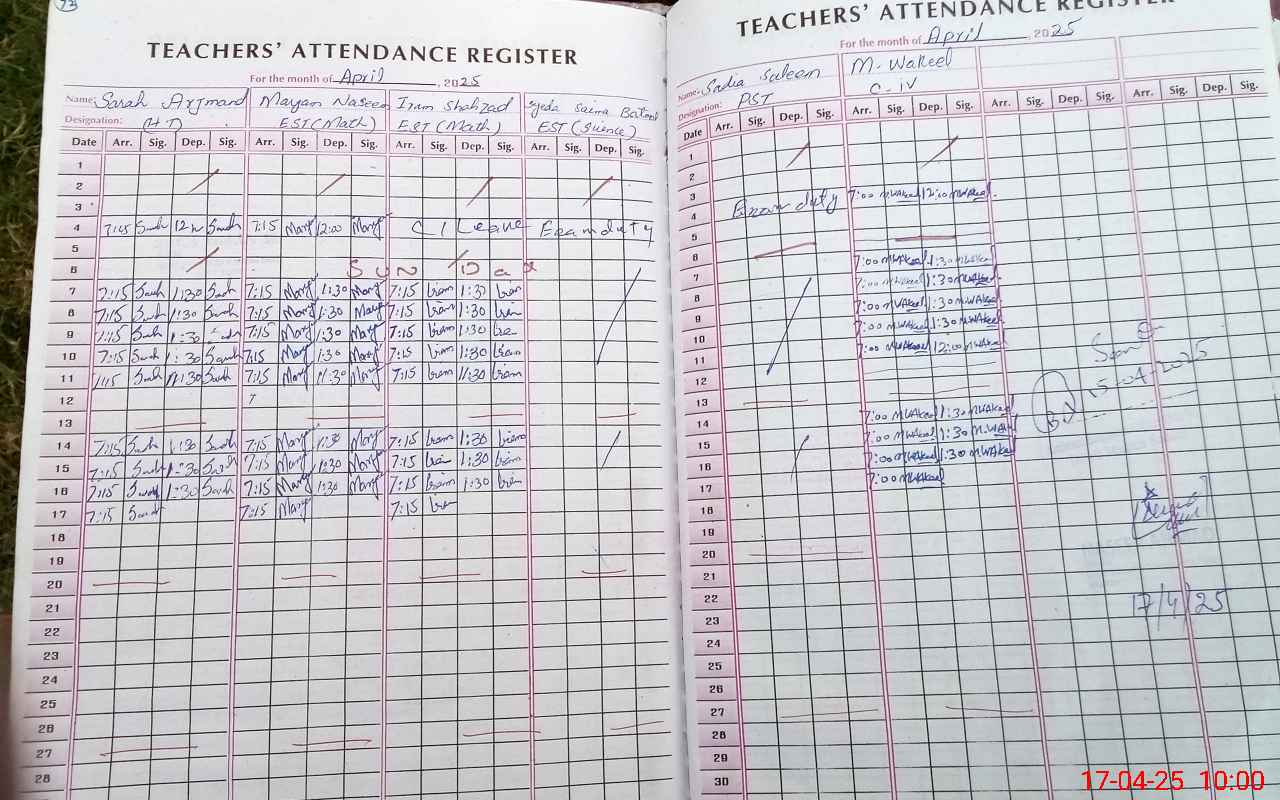 23
TEACHERS' ATTENDANCE REGISTER
For the month of April, 2025
Name: Sarah Arjmand Maryam Naseem Irum Shahzad Syeda Saima Batool
Designation: (HT) EST (Math) EST (Math) EST (Science)
Date Arr. Sig. Dep. Sig. Arr. Sig. Dep. Sig. Arr. Sig. Dep. Sig. Arr. Sig. Dep. Sig.
1
2
3
4 7:15 Sarah 12 Sarah 7:15 Mary 12:00 Mary C/Leave Exam duty
5
6 Sunday
7 7:15 Sarah 1:30 Sarah 7:15 Mary 1:30 Mary 7:15 Iram 1:30 Iram
8 7:15 Sarah 1:30 Sarah 7:15 Mary 1:30 Mary 7:15 Iram 1:30 Iram
9 7:15 Sarah 1:30 7:15 Mary 1:30 Mary 7:15 Iram 1:30 Iram
10 7:15 Sarah 1:30 Sarah 7:15 Mary 1:30 Mary 7:15 Iram 1:30 Iram
11 7:15 Sarah 11:30 Sarah 7:15 Mary 11:30 Mary 7:15 Iram 11:30 Iram
12
13
14 7:15 Sarah 1:30 Sarah 7:15 Mary 1:30 Mary 7:15 Iram 1:30 Iram
15 7:15 Sarah 1:30 Sarah 7:15 Mary 1:30 Mary 7:15 Iram 1:30 Iram
16 7:15 Sarah 1:30 Sarah 7:15 Mary 1:30 Mary 7:15 Iram 1:30 Iram
17 7:15 Sarah 7:15 Mary 7:15 Iram
18
19
20
21
22
23
24
25
26
27
28
TEACHERS' ATTENDANCE REGISTER
For the month of April 2025
Name: Sadia Saleem M. Wakeel
Designation: PST C-IV
Date Arr. Sig. Dep. Sig. Arr. Sig. Dep. Sig. Arr. Sig. Dep. Sig. Arr. Sig. Dep. Sig.
1
2
3
4 Exam duty 7:00 MWakeel 12:00 MWakeel
5
6
7 7:00 MWakeel 1:30 MWakeel
8 7:00 MWakeel 1:30 MWakeel
9 7:00 MWakeel 1:30 MWakeel
10 7:00 MWakeel 1:30 MWakeel
11 7:00 MWakeel 12:00 MWakeel
12
13
14 7:00 MWakeel 1:30 MWakeel
15 7:00 MWakeel 1:30 MWakeel
16 7:00 MWakeel 1:30 MWakeel
17 7:00 MWakeel
18
19
20
21
22
23
24
25
26
27
28
29
30
15-04-2025
17/4/25
17-04-25 10:00